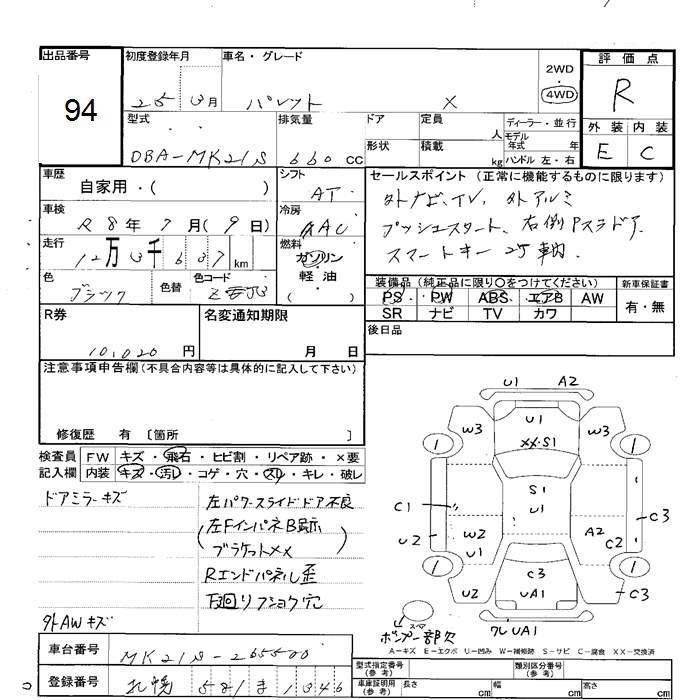 出品番号
94
初度登録年月
25 3月
車名・グレード
パレット X
2WD
4WD
評価点
R
型式
DBA-MK21S
排気量
660 CC
ドア
形状
定員
人
積載
kg
ディーラー・並行
モデル
年式 年
ハンドル 左・右
外装 内装
E C
車歴
自家用・( )
シフト
AT
セールスポイント (正常に機能するものに限ります)
外ナビ、TV、外アルミ
プッシュスタート、右側Pスラドア
スマートキー
車検
R8年7月(9日)
冷房
AAC
走行
12万3千637km
燃料
ガソリン
軽油
( )
色
ブラック
色替
色コード
ZJ3
装備品 (純正品に限り〇をつけてください)
PS PW ABS エアB AW
SR ナビ TV カワ
新車保証書
有・無
R券
10,020円
名変通知期限
月 日
後日品
注意事項申告欄(不具合内容等は具体的に記入して下さい)
修復歴 有 〔箇所 〕
検査員 FW キズ・飛石・ヒビ割・リペア跡・×要
記入欄 内装 キズ・汚レ・コゲ・穴・スレ・キレ・破レ
ドアミラーキズ
左パワースライドドア不良
左FインパネB顕示
ブラケット××
Rエンドパネル歪
下回リフショク穴
外AWキズ
U1 A2
W3 U1 W3
XX・S1
1 1
S1
U1
C1 C3
U2 W2 A2
U1 C2
1 1
C3
U2 UA1 C3
スペア
ワレUA1
A=キズ E=エクボ U=凹み W=補修跡 S=サビ C=腐食 XX=交換済
車台番号
MK21S-265500
登録番号
札幌 581 ま 1346
型式指定番号
(参考)
類別区分番号
(参考)
車庫証明用
(参考)
長さ cm 幅 cm 高さ cm